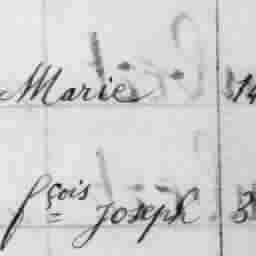 Marie 14
fçois Joseph 3